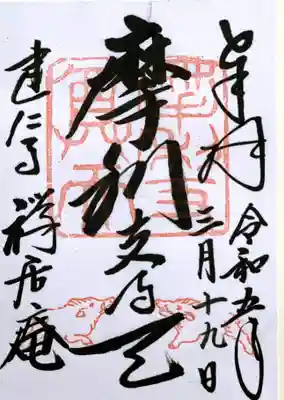 奉拝
令和五年
三月十九日
摩利支尊天
建仁寺
禅居庵